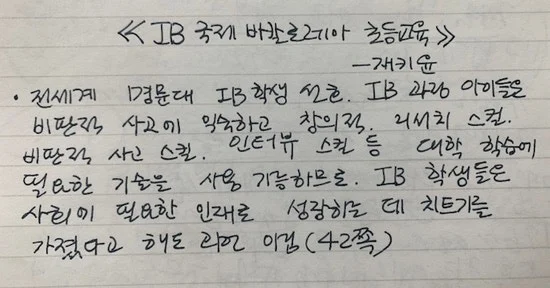 ≪IB 국제 바칼로레아 초등교육≫
-재키윤
• 전세계 명문대 IB학생 선호. IB 과정 아이들은
비판적 사고에 익숙하고 창의적. 리서치 스킬.
비판적 사고 스킬. 인터뷰 스킬 등 대학 학습에
필요한 기술을 사용 가능하므로. IB 학생들은
사회에 필요한 인재로 성장하는 데 치트키를
가졌다고 해도 과언 아님(42쪽)